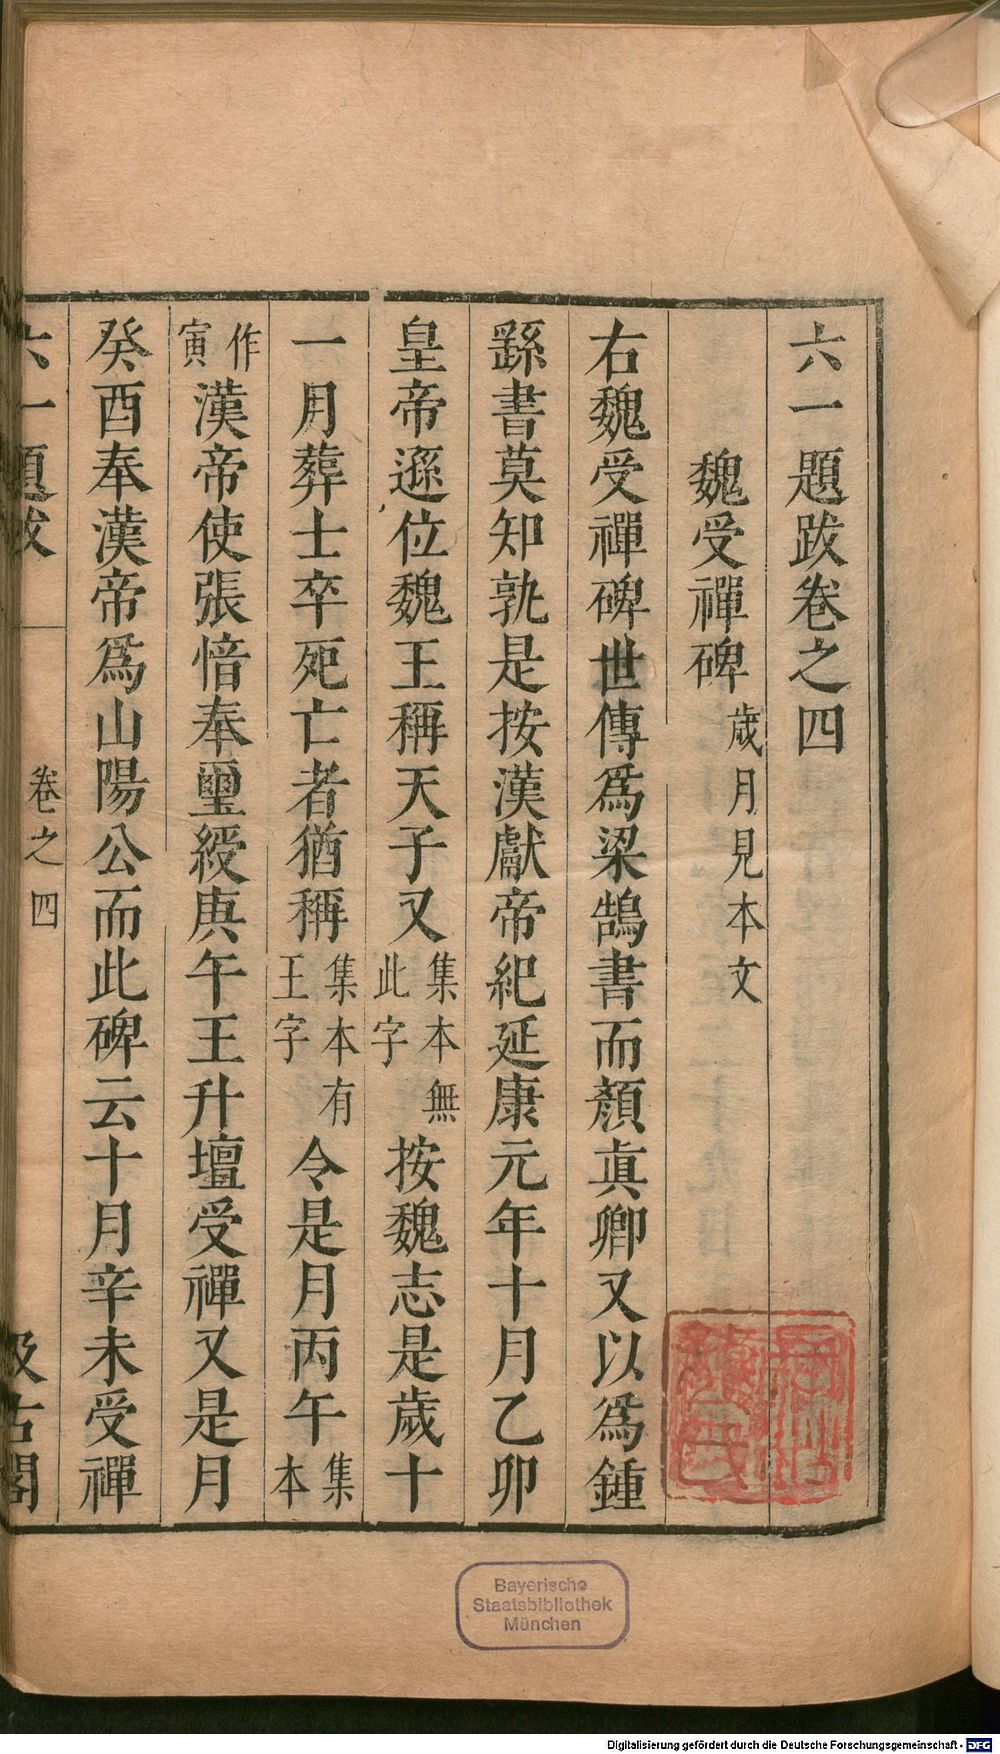 六一題跋卷之四
魏受禪碑 歲月見本文
右魏受禪碑世傳爲梁鵠書而顏眞卿又以爲鍾
繇書莫知孰是按漢獻帝紀延康元年十月乙卯
皇帝遜位魏王稱天子又 集本無此字 按魏志是歲十
一月葬士卒死亡者猶稱 集本有王字 令是月丙午 集本
作寅 漢帝使張愔奉璽綬庚午王升壇受禪又是月
癸酉奉漢帝爲山陽公而此碑云十月辛未受禪
六一題跋 卷之四 汲古閣
Bayerische
Staatsbibliothek
München
Digitalisierung gefördert durch die Deutsche Forschungsgemeinschaft - DFG